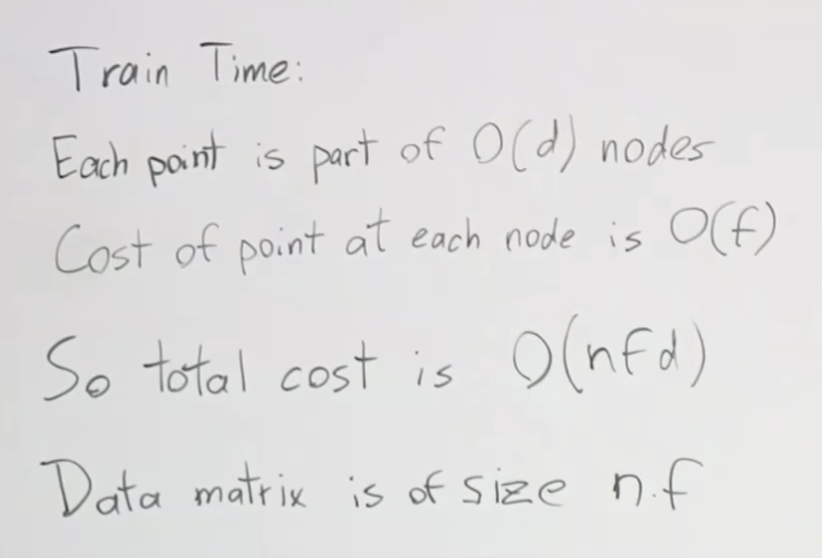 Train Time:
Each point is part of O(d) nodes
Cost of point at each node is O(f)
So total cost is O(nfd)
Data matrix is of size n.f